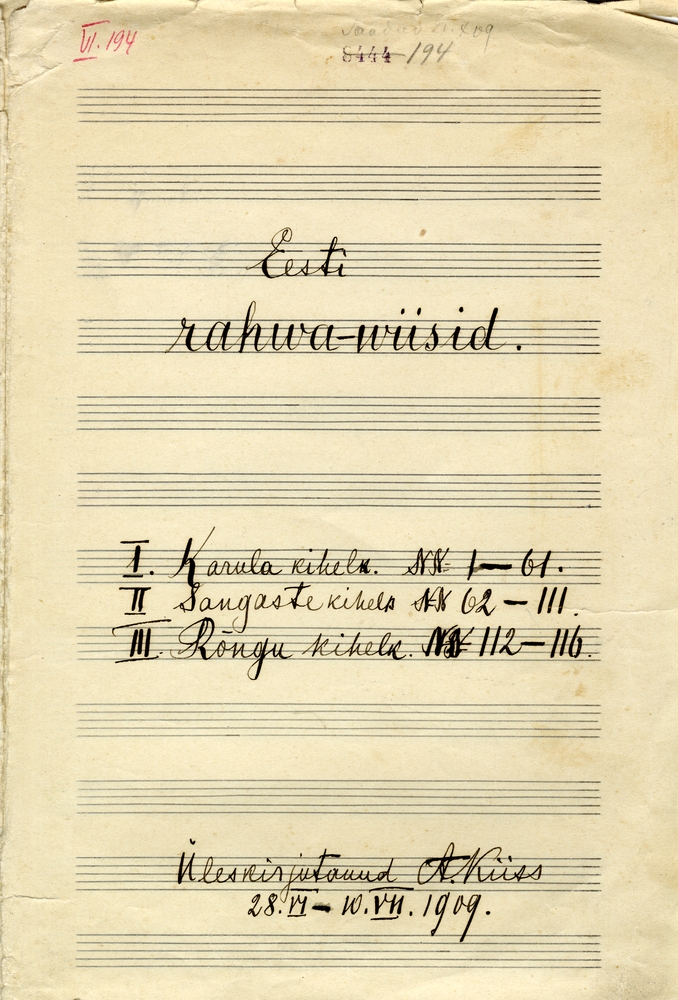 VI. 194
8444 194
Eesti
rahwa-wiisid.
I. Karula kihelk. NN 1—61.
II Sangaste kihelk NN 62—111.
III. Rõngu kihelk. NN 112—116.
Üleskirjutanud A. Kiiss
28. VI — 10. VII. 1909.